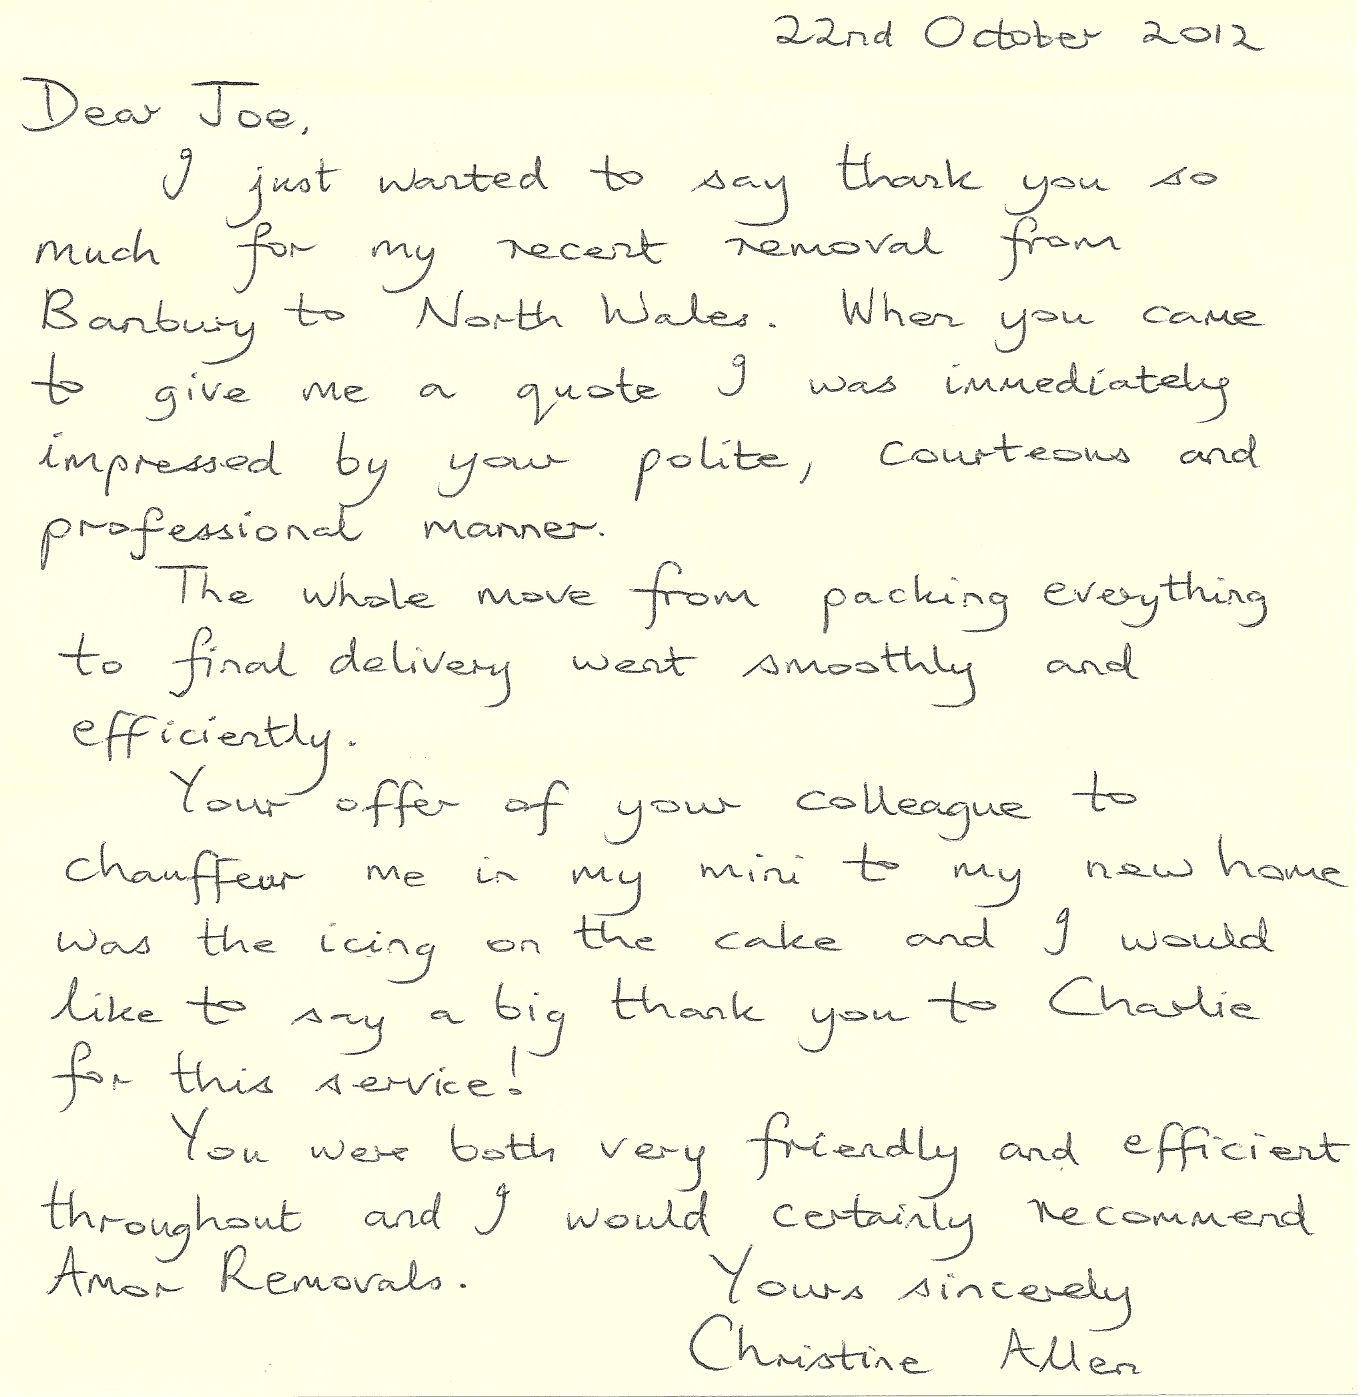 22nd October 2012
Dear Joe,
I just wanted to say thank you so
much for my recent removal from
Banbury to North Wales. When you came
to give me a quote I was immediately
impressed by your polite, courteous and
professional manner.
The whole move from packing everything
to final delivery went smoothly and
efficiently.
Your offer of your colleague to
chauffeur me in my mini to my new home
was the icing on the cake and I would
like to say a big thank you to Charlie
for this service!
You were both very friendly and efficient
throughout and I would certainly recommend
Amor Removals.
Yours sincerely
Christine Allen